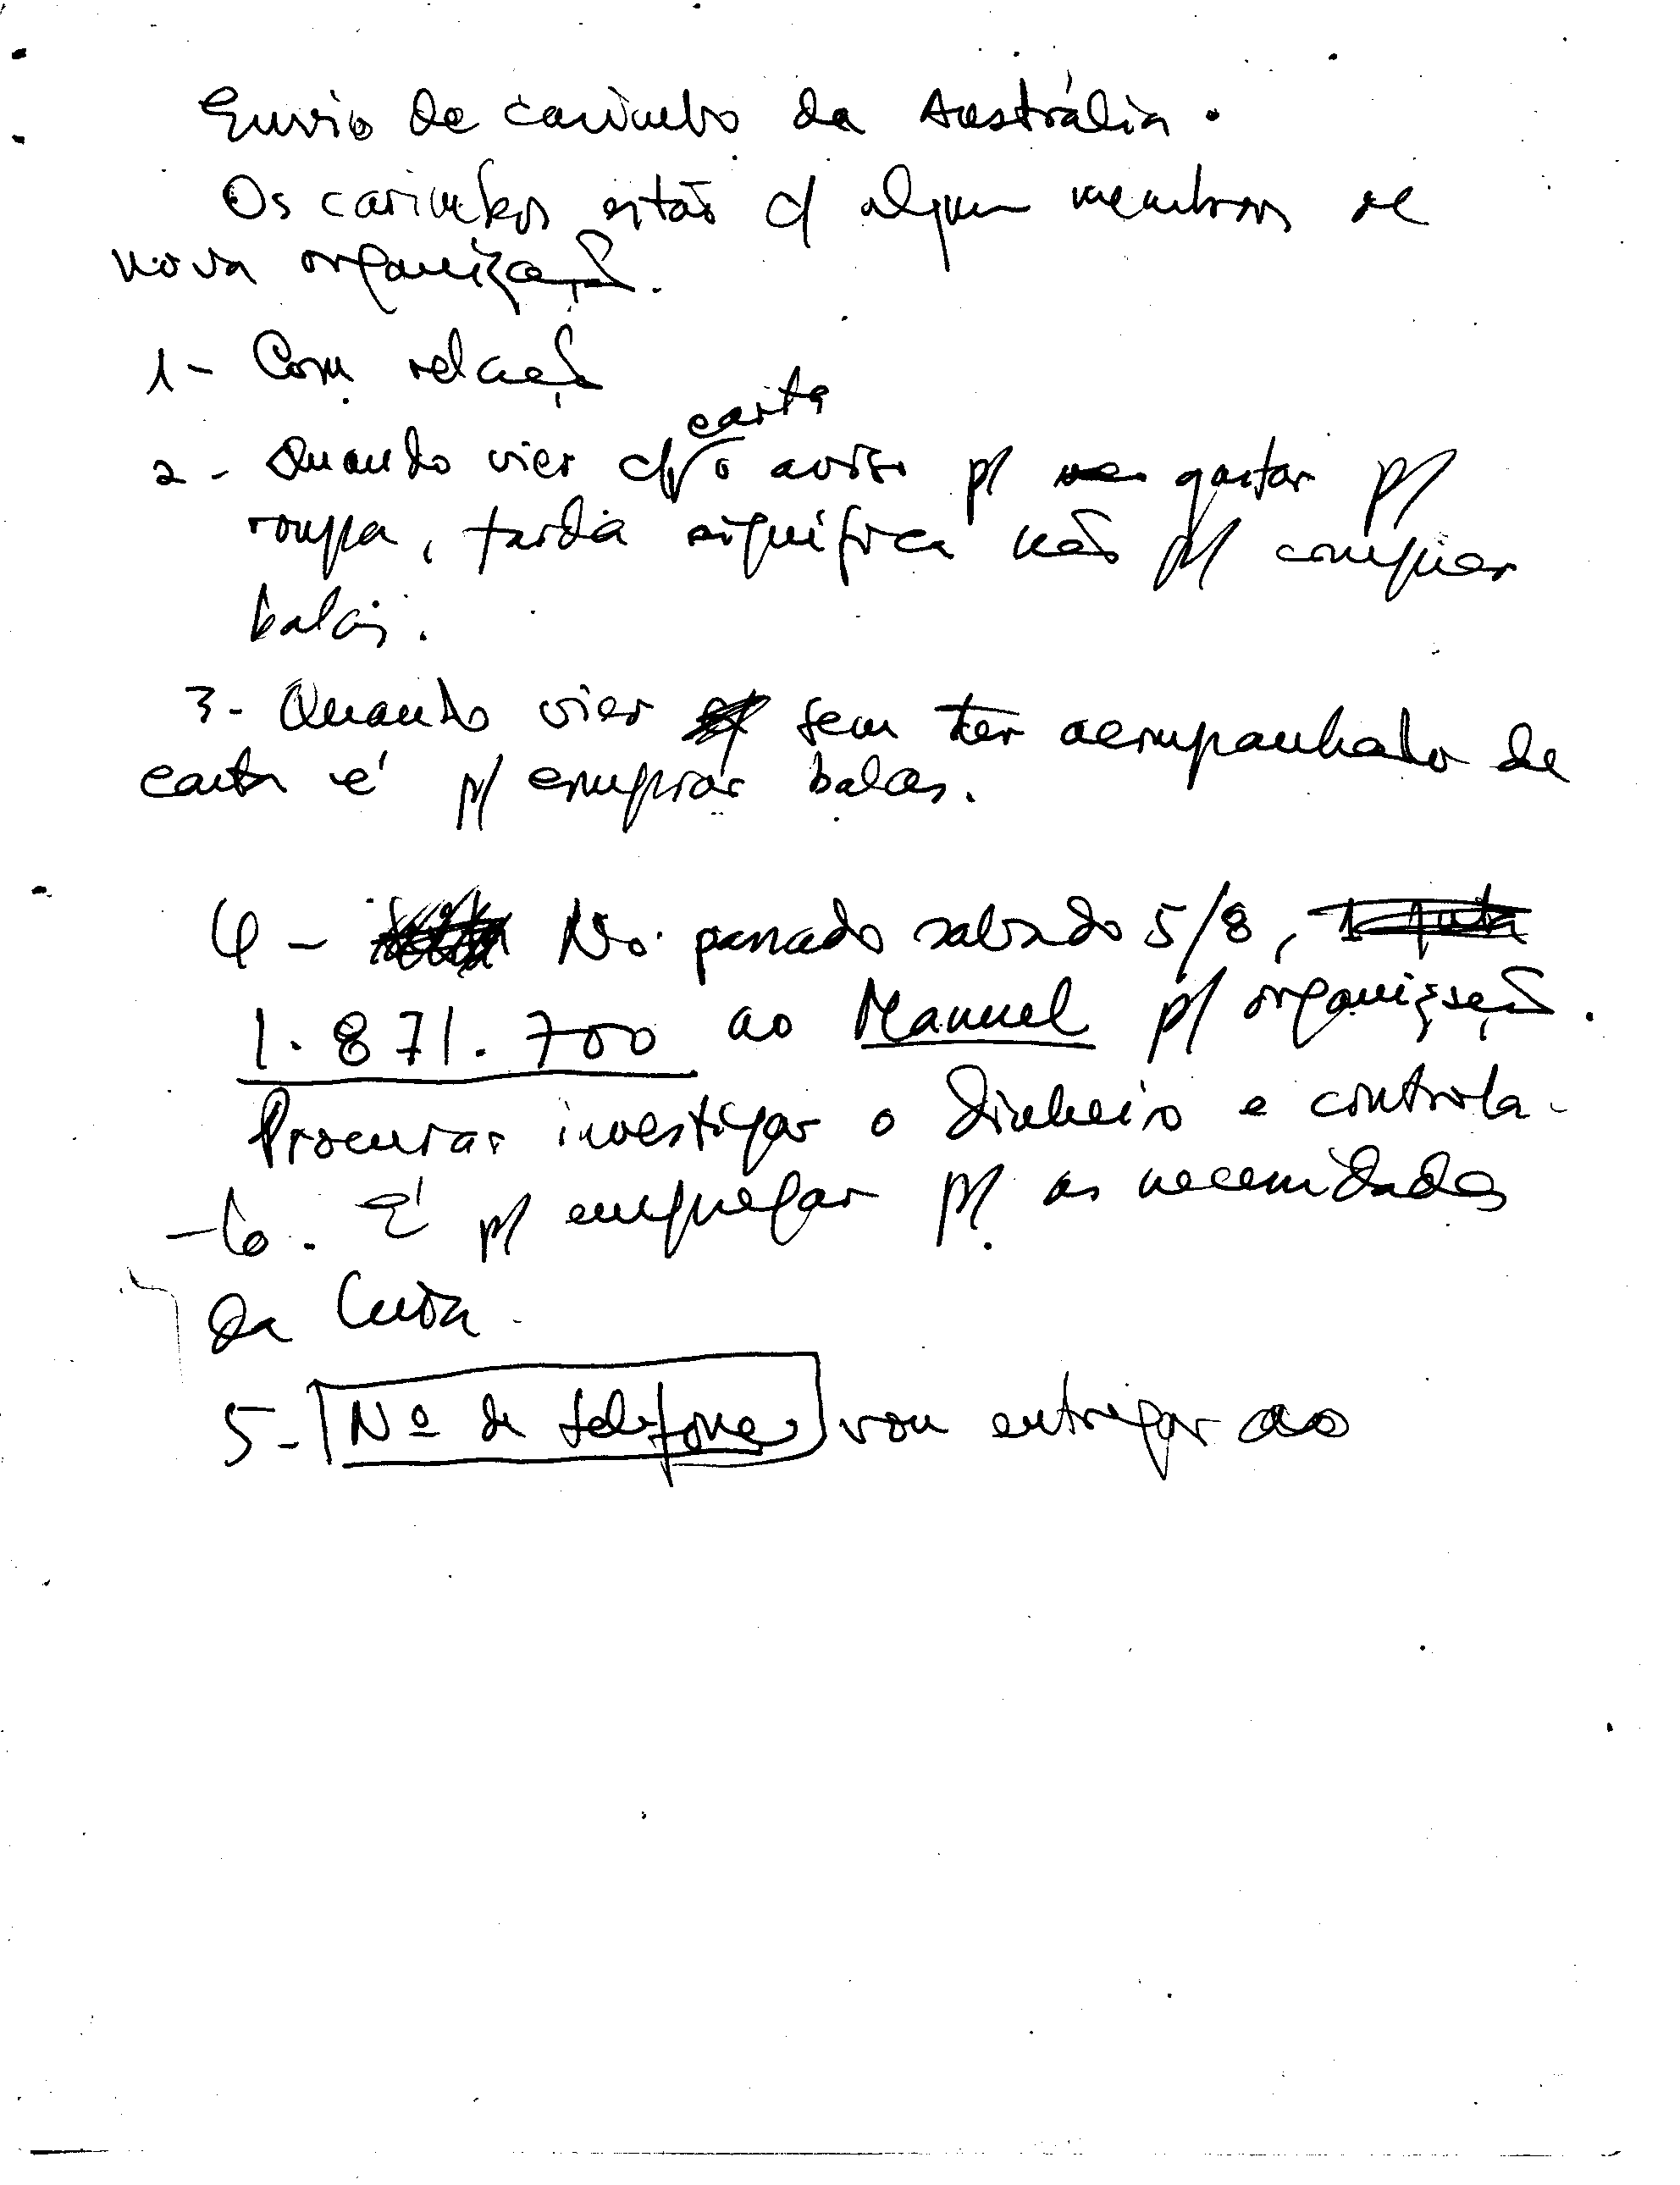 Envio de carimbo da Austrália.
Os carimbos estão c/ alguns membros de
nova organização.
1- Com relação
carta
2- Quando vier c/ o aviso p/ gastar p/
roupa, tarda significa não p/ comprar
balas.
3- Quando vier sem ter acompanhado de
carta é p/ comprar balas.
4- No passado sabado 5/8,
1.871.700 ao Manuel p/ organização.
Procurar investigar o dinheiro e controla-
-lo. É p/ empregar p/ as necessidades
da
5- Nº de telefone vou entregar ao